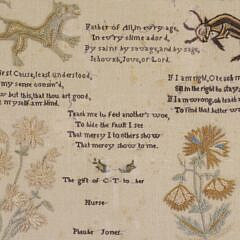 Father of All, in ev'ry age,
In ev'ry clime ador'd,
By saint by savage, and by sage,
Jehovah, Jove, or Lord.
First Cause, least understood,
my sense confin'd,
but this, that thou art good,
myself am blind.
If I am right, O teach
still in the right to stay,
If I am wrong, oh teach
To find that better
Teach me to feel another's woe,
To hide the fault I see
That mercy I to others show
That mercy show to me.
The gift of C·T· to her
Nurse
Phebe Jones.